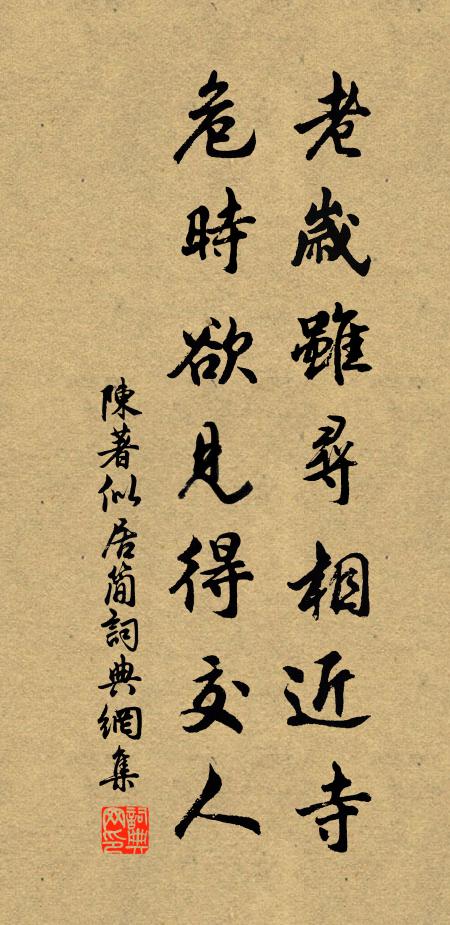 老歲雖尋相近寺
危時欲見得交人
陳著似居簡詞典網集
詞典網印